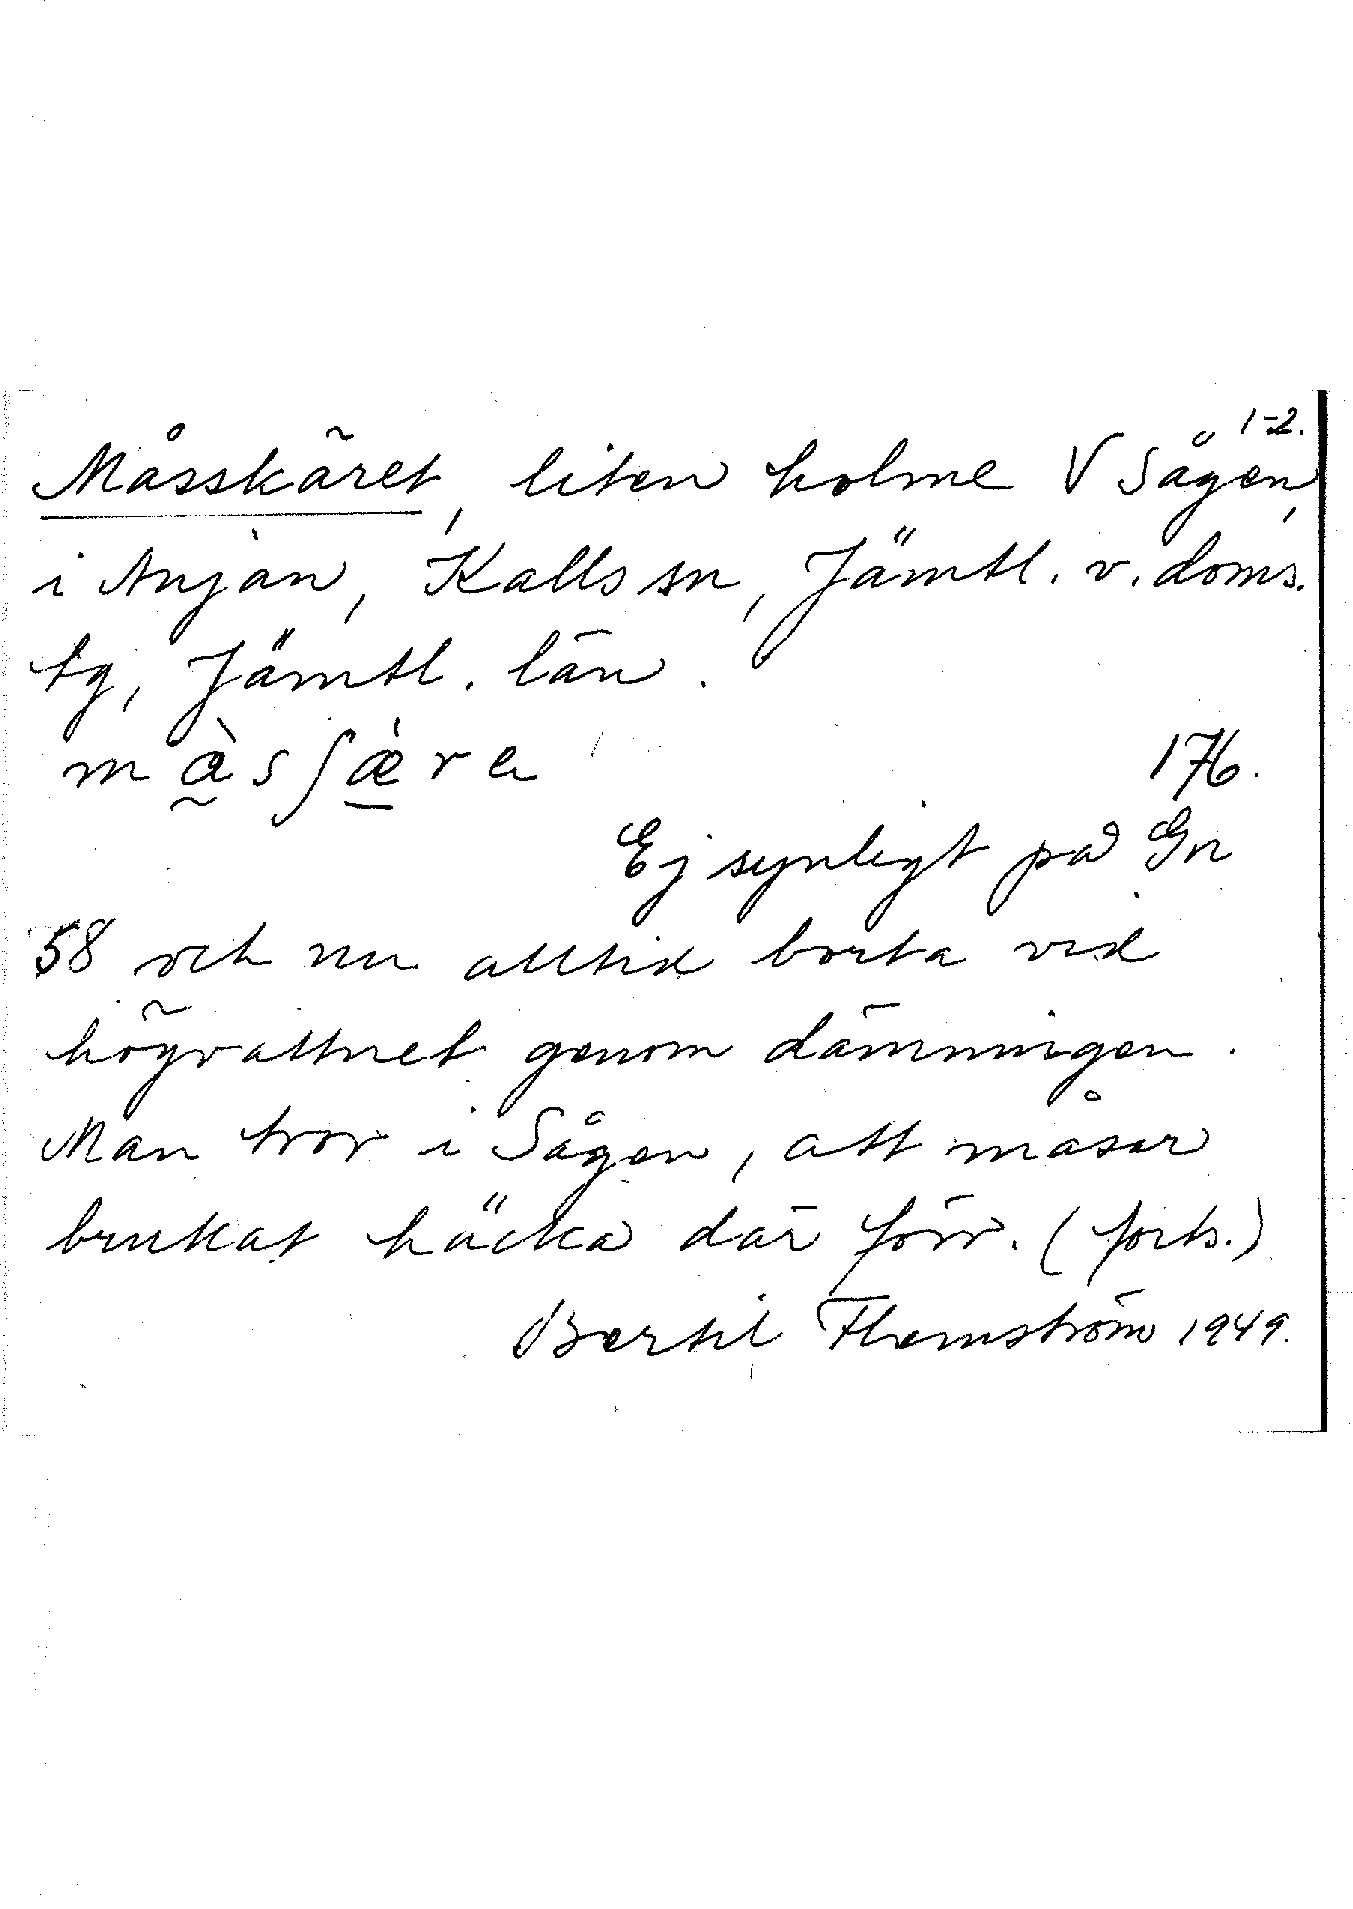 1-2.
Måsskäret, liten holme V Sågen,
i Anjan, Kalls sn, Jämtl. v. doms.
tg, Jämtl. län.
må̀sʃæ̀re
176.
Ej synligt på Gn
58 och nu alltid borta vid
högvattnet genom dämningen.
Man tror i Sågen, att måsar
brukat häcka där förr. (forts.)
Bertil Flemström 1949.